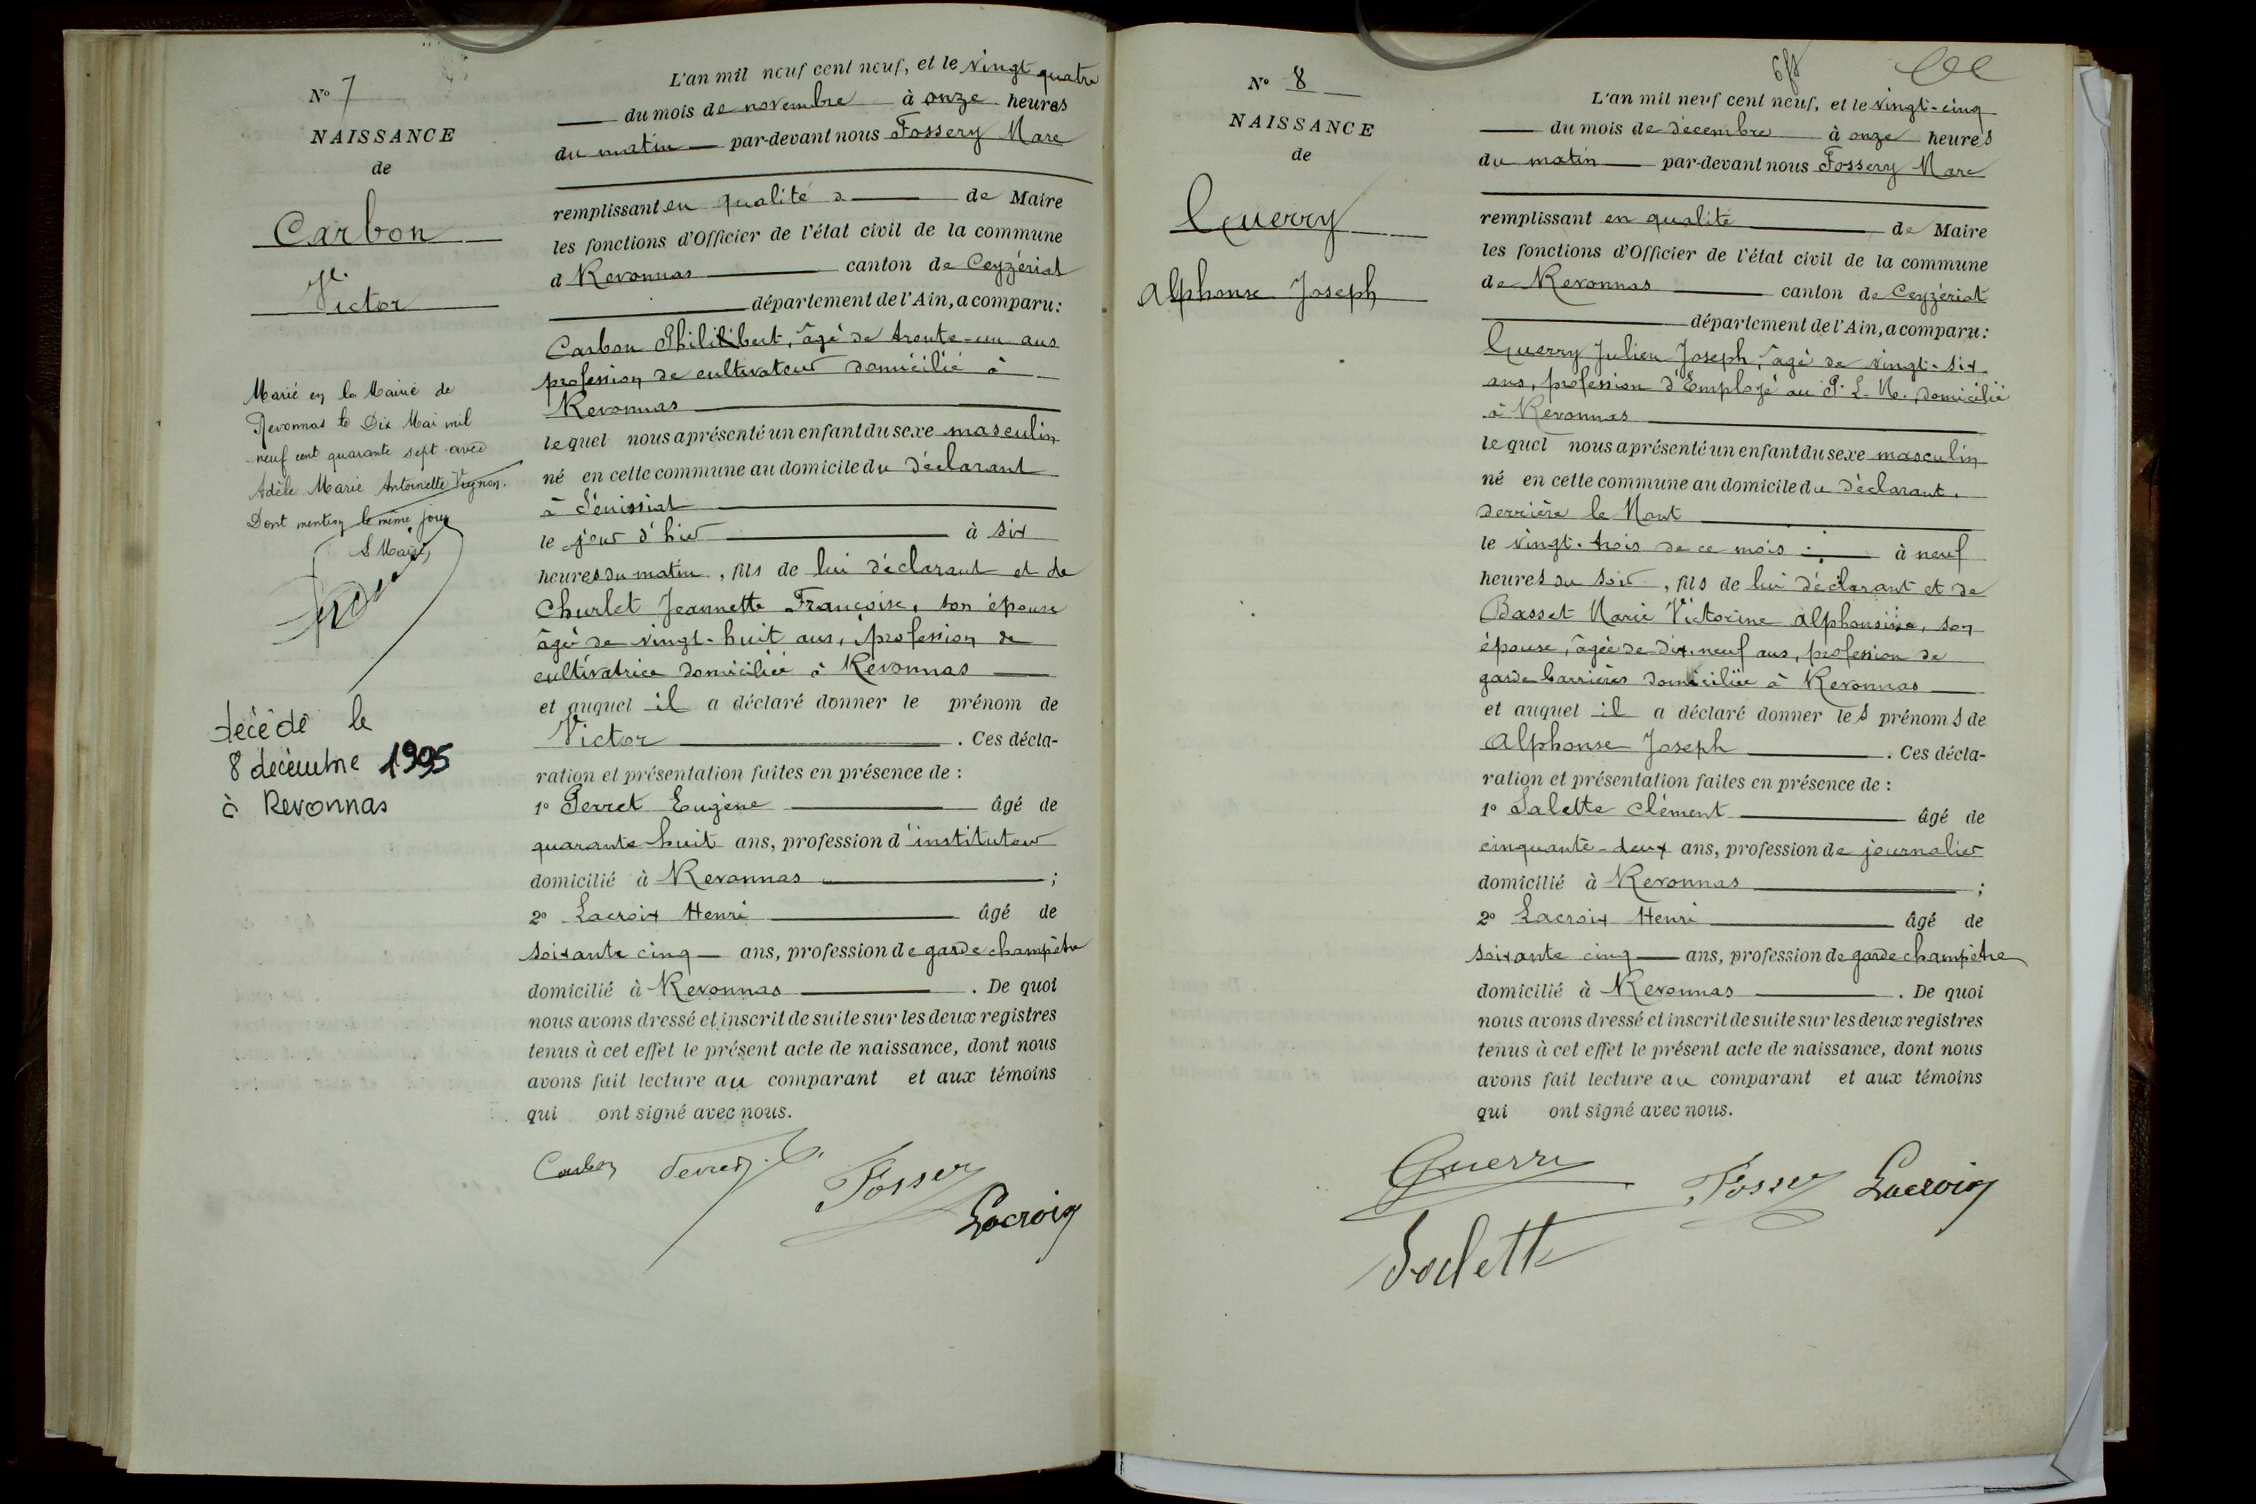 N° 7
NAISSANCE
de
Carbon
Victor
Marié en la Mairie de
Revonnas le Dix Mai mil
neuf cent quarante sept avec
Adèle Marie Antoinette Vignon.
Dont mention le même jour
Le Maire,
décédé le
8 décembre 1995
à Revonnas
L'an mil neuf cent neuf, et le vingt quatre
du mois de novembre à onze heures
du matin par-devant nous Fossery Marc
remplissant en qualité de Maire
les fonctions d'Officier de l'état civil de la commune
d Revonnas canton de Ceyzériat
département de l'Ain, a comparu :
Carbon Philibert, âgé de trente-un ans
profession de cultivateur domicilié à
Revonnas
lequel nous a présenté un enfant du sexe masculin
né en cette commune au domicile du déclarant
à Sénissiat
le jour d'hier à six
heures du matin, fils de lui déclarant et de
Churlet Jeannette Françoise, son épouse
âgé de vingt-huit ans, profession de
cultivatrice domiciliée à Revonnas
et auquel il a déclaré donner le prénom de
Victor . Ces décla-
ration et présentation faites en présence de :
1° Perret Eugène âgé de
quarante-huit ans, profession d'instituteur
domicilié à Revonnas ;
2° Lacroix Henri âgé de
soixante cinq ans, profession de garde champêtre
domicilié à Revonnas . De quoi
nous avons dressé et inscrit de suite sur les deux registres
tenus à cet effet le présent acte de naissance, dont nous
avons fait lecture au comparant et aux témoins
qui ont signé avec nous.
Carbon Perret Fossery
Lacroix
N° 8
NAISSANCE
de
Guerry
Alphonse Joseph
L'an mil neuf cent neuf, et le vingt-cinq
du mois de décembre à onze heures
du matin par-devant nous Fossery Marc
remplissant en qualité de Maire
les fonctions d'Officier de l'état civil de la commune
de Revonnas canton de Ceyzériat
département de l'Ain, a comparu :
Guerry Julien Joseph, âgé de vingt-six
ans, profession d'Employé au P. L. M., domicilié
à Revonnas
lequel nous a présenté un enfant du sexe masculin
né en cette commune au domicile du déclarant,
derrière le Mont
le vingt-trois de ce mois à neuf
heures du soir, fils de lui déclarant et de
Basset Marie Victorine Alphonsine, son
épouse, âgée de dix-neuf ans, profession de
garde barrières domiciliée à Revonnas
et auquel il a déclaré donner les prénoms de
Alphonse Joseph . Ces décla-
ration et présentation faites en présence de :
1° Salette Clément âgé de
cinquante-deux ans, profession de journalier
domicilié à Revonnas ;
2° Lacroix Henri âgé de
soixante cinq ans, profession de garde champêtre
domicilié à Revonnas . De quoi
nous avons dressé et inscrit de suite sur les deux registres
tenus à cet effet le présent acte de naissance, dont nous
avons fait lecture au comparant et aux témoins
qui ont signé avec nous.
Guerry Fossery Lacroix
Salette